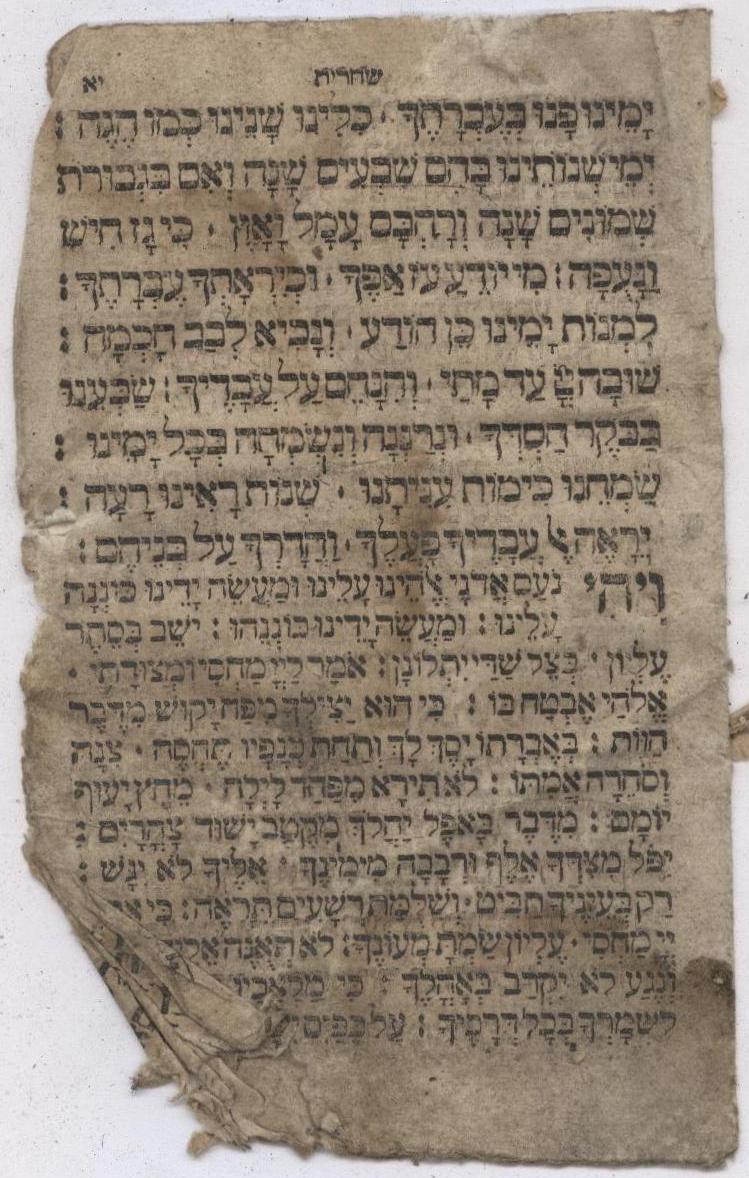 שחרית יא
יָמֵינוּ פָּנוּ בְעֶבְרָתֶךָ · כִּלִּינוּ שָׁנֵינוּ כְמוֹ הֶגֶה :
יְמֵי שְׁנוֹתֵינוּ בָּהֶם שִׁבְעִים שָׁנָה וְאִם בִּגְבוּרֹת
שְׁמוֹנִים שָׁנָה וְרָהְבָּם עָמָל וָאָוֶן · כִּי גָז חִישׁ
וַנָּעֻפָה : מִי יוֹדֵעַ עֹז אַפֶּךָ · וּכְיִרְאָתְךָ עֶבְרָתֶךָ :
לִמְנוֹת יָמֵינוּ כֵּן הוֹדַע · וְנָבִיא לְבַב חָכְמָה :
שׁוּבָה עַד מָתַי · וְהִנָּחֵם עַל עֲבָדֶיךָ : שַׂבְּעֵנוּ
בַבֹּקֶר חַסְדֶּךָ · וּנְרַנְּנָה וְנִשְׂמְחָה בְּכָל יָמֵינוּ :
שַׂמְּחֵנוּ כִּימוֹת עִנִּיתָנוּ · שְׁנוֹת רָאִינוּ רָעָה :
יֵרָאֶה אֶל עֲבָדֶיךָ פָעֳלֶךָ · וַהֲדָרְךָ עַל בְּנֵיהֶם :
וִיהִי נֹעַם אֲדֹנָי אֱלֹהֵינוּ עָלֵינוּ וּמַעֲשֵׂה יָדֵינוּ כּוֹנְנָה
עָלֵינוּ : וּמַעֲשֵׂה יָדֵינוּ כּוֹנְנֵהוּ : יֹשֵׁב בְּסֵתֶר
עֶלְיוֹן · בְּצֵל שַׁדַּי יִתְלוֹנָן : אֹמַר לַיְיָ מַחְסִי וּמְצוּדָתִי ·
אֱלֹהַי אֶבְטַח בּוֹ : כִּי הוּא יַצִּילְךָ מִפַּח יָקוּשׁ מִדֶּבֶר
הַוּוֹת : בְּאֶבְרָתוֹ יָסֶךְ לָךְ וְתַחַת כְּנָפָיו תֶּחְסֶה · צִנָּה
וְסֹחֵרָה אֲמִתּוֹ : לֹא תִירָא מִפַּחַד לָיְלָה · מֵחֵץ יָעוּף
יוֹמָם : מִדֶּבֶר בָּאֹפֶל יַהֲלֹךְ מִקֶּטֶב יָשׁוּד צָהֳרָיִם :
יִפֹּל מִצִּדְּךָ אֶלֶף וּרְבָבָה מִימִינֶךָ · אֵלֶיךָ לֹא יִגָּשׁ :
רַק בְּעֵינֶיךָ תַבִּיט · וְשִׁלֻּמַת רְשָׁעִים תִּרְאֶה : כִּי
יְיָ מַחְסִי · עֶלְיוֹן שַׂמְתָּ מְעוֹנֶךָ : לֹא תְאֻנֶּה
וְנֶגַע לֹא יִקְרַב בְּאָהֳלֶךָ : כִּי מַלְאָכָיו
לִשְׁמָרְךָ בְּכָל דְּרָכֶיךָ : עַל כַּפַּיִם